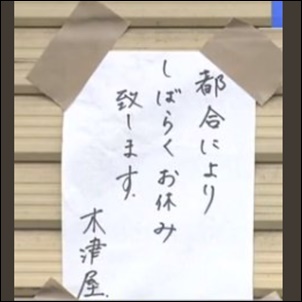 都合により
しばらくお休み
致します.
木津屋.